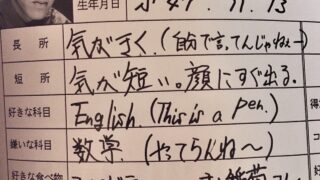 生年月日 S.47. 11. 13
長所 気がきく。(自分で言ってんじゃねぇー)
短所 気が短い。顔にすぐ出る。
好きな科目 English. (This is a pen.)
嫌いな科目 数学 (やってらんね〜)
好きな食べ物